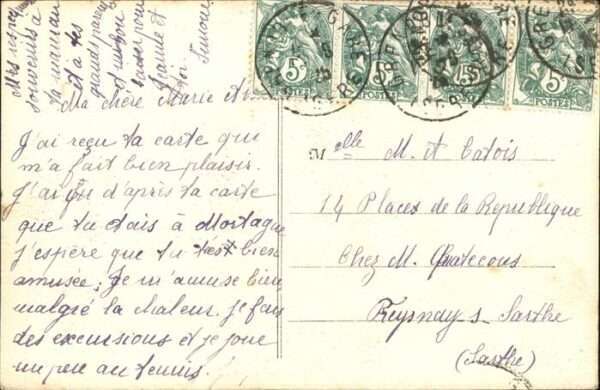 Mes respec
souvenirs à
ta maman
et à tes
grands parents
et un bon
baiser pour
Simone
Ma chère Marie
J'ai reçu ta carte qui
m'a fait bien plaisir.
J'ai vu d'après ta carte
que tu étais à Mortagne
j'espère que tu t'es bien
amusée; Je m'amuse bien
malgré la chaleur. je fais
des excursions et je joue
un peu au tennis.
5c 5c 5c 5c
POSTES POSTES POSTES
GRENOBLE GARE
ISERE
Melle M. A Catois
14 Places de la Republique
Chez M.
Fresnay s. Sarthe
(Sarthe)